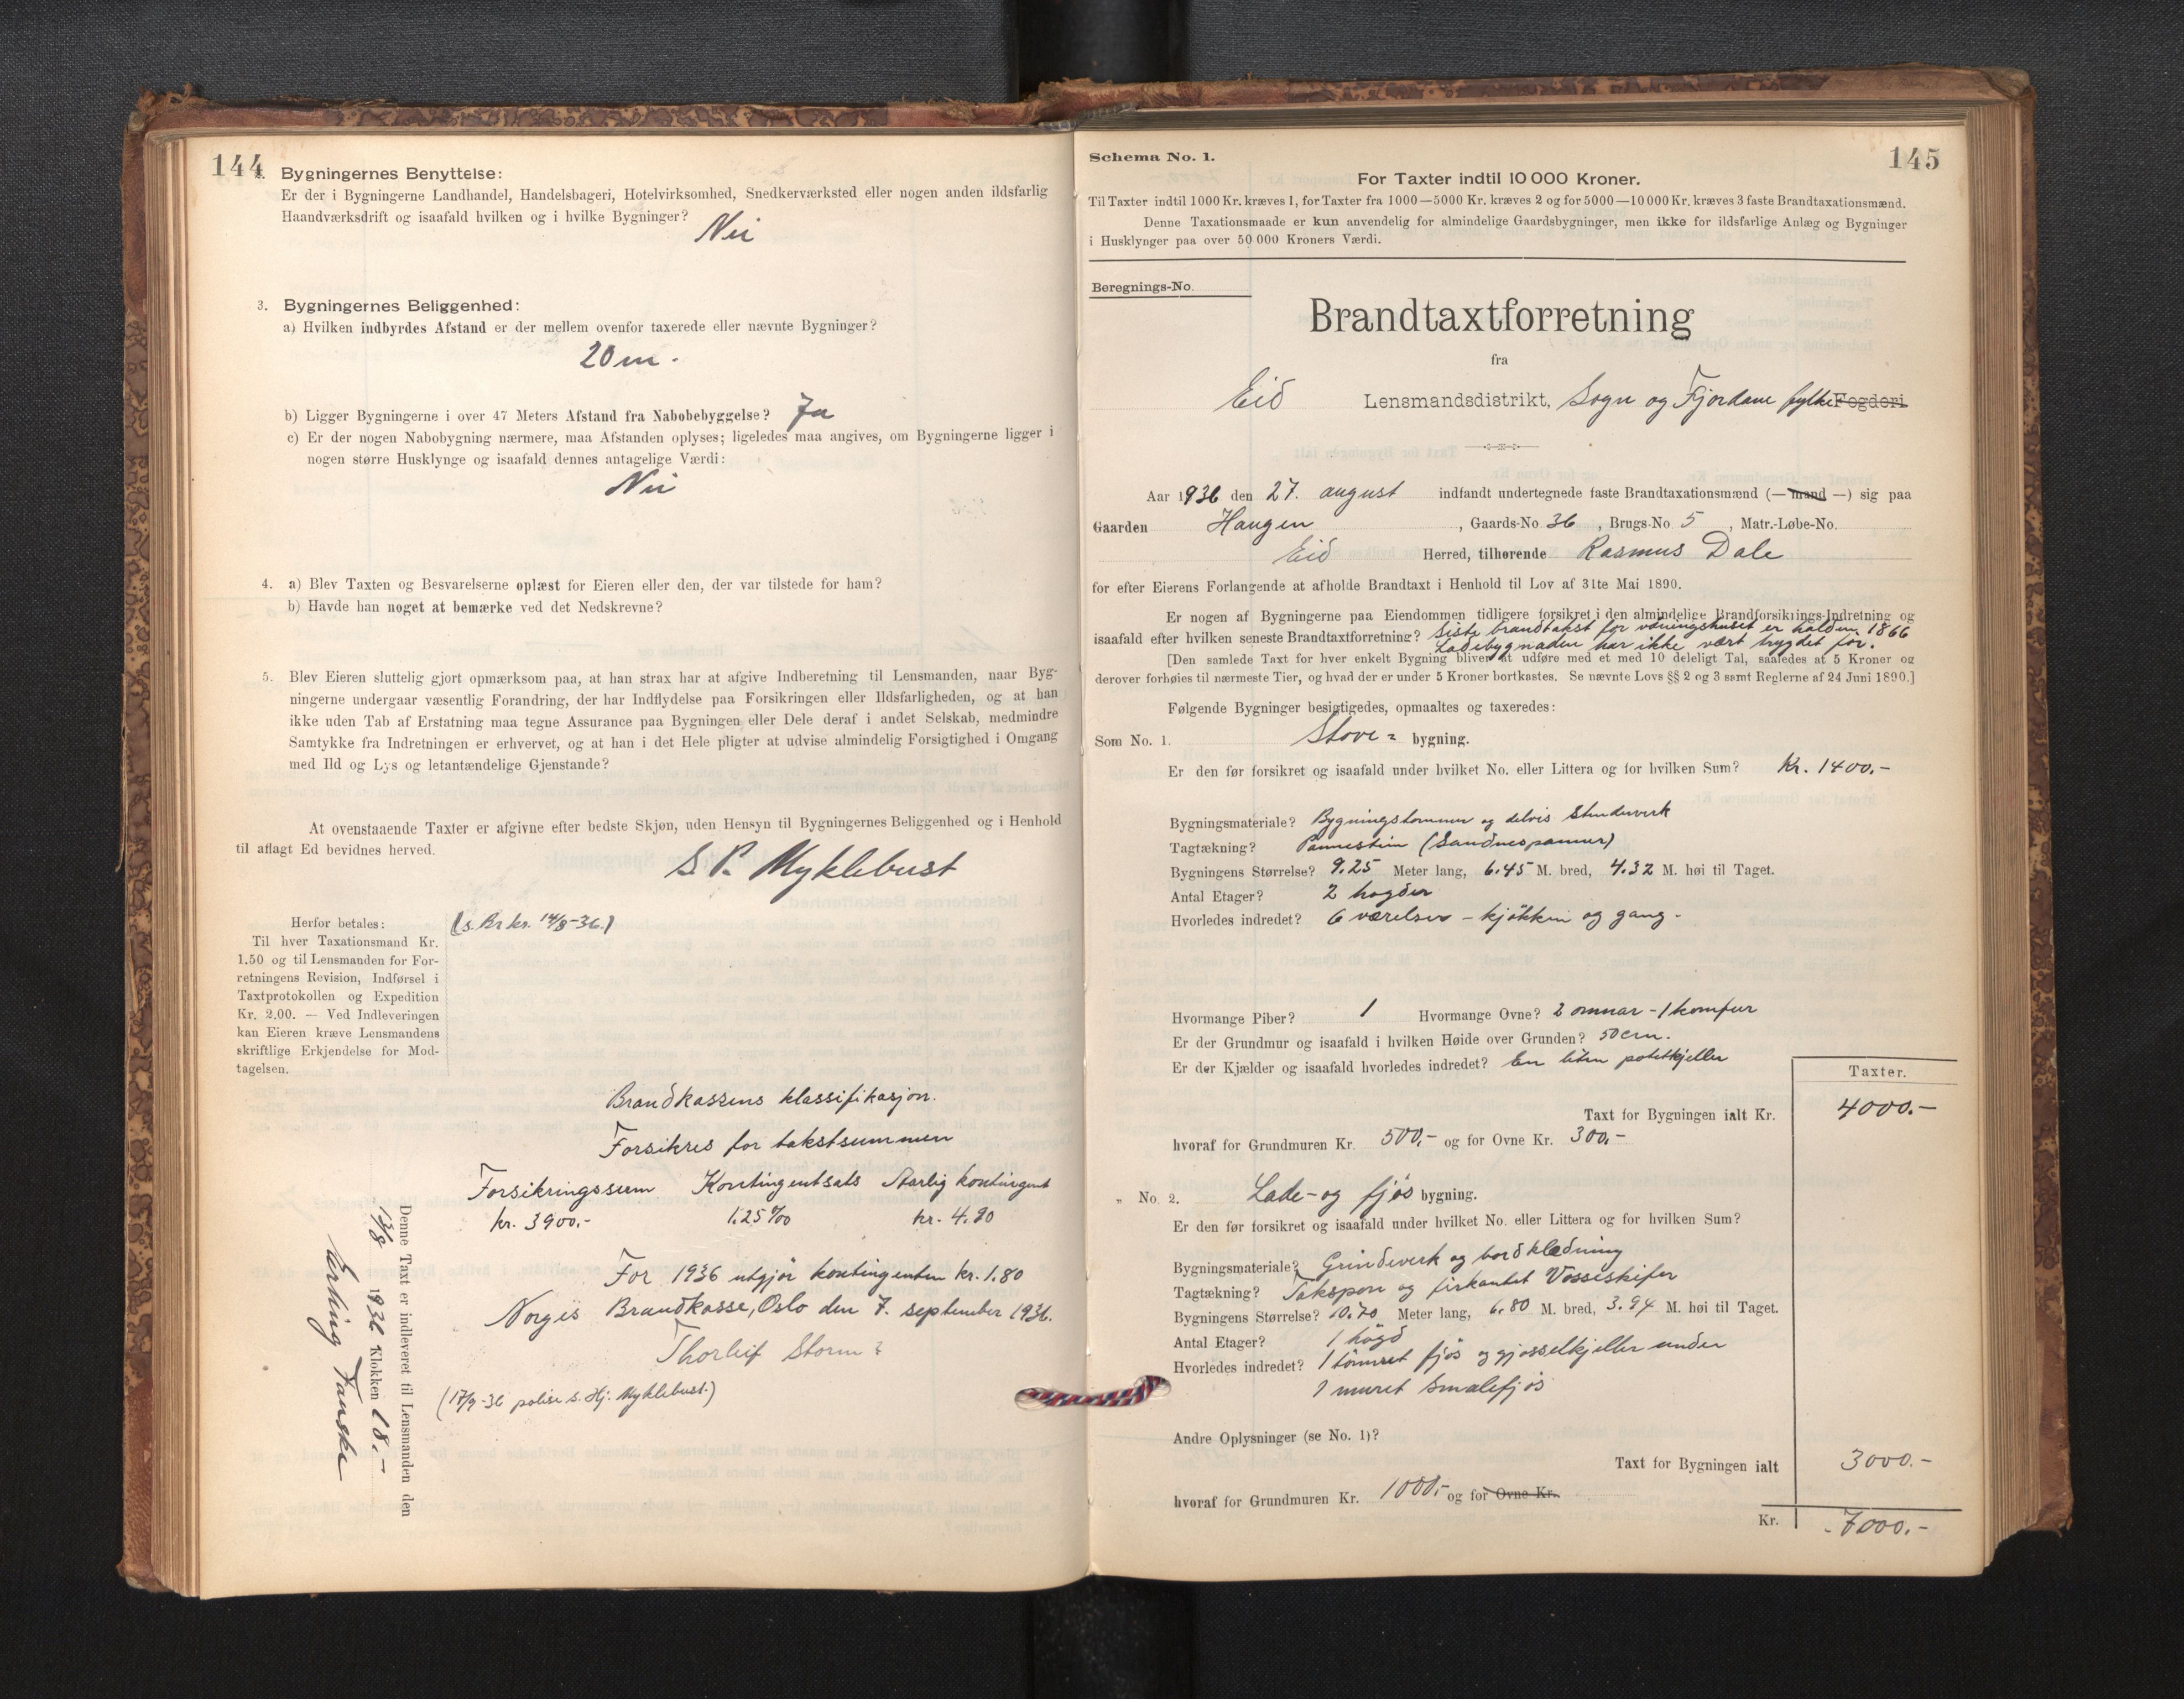 144
2. Bygningernes Benyttelse:
Er der i Bygningerne Landhandel, Handelsbageri, Hotelvirksomhed, Snedkerværksted eller nogen anden ildsfarlig
Haandværksdrift og isaafald hvilken og i hvilke Bygninger?
Nei
3. Bygningernes Beliggenhed:
a) Hvilken indbyrdes Afstand er der mellem ovenfor taxerede eller nævnte Bygninger?
20 m.
b) Ligger Bygningerne i over 47 Meters Afstand fra Nabobebyggelse? Ja
c) Er der nogen Nabobygning nærmere, maa Afstanden oplyses; ligeledes maa angives, om Bygningerne ligger i
nogen større Husklynge og isaafald dennes antagelige Værdi:
Nei
4. a) Blev Taxten og Besvarelserne oplæst for Eieren eller den, der var tilstede for ham?
b) Havde han noget at bemærke ved det Nedskrevne?
5. Blev Eieren sluttelig gjort opmærksom paa, at han strax har at afgive Indberetning til Lensmanden, naar Byg-
ningerne undergaar væsentlig Forandring, der har Indflydelse paa Forsikringen eller Ildsfarligheden, og at han
ikke uden Tab af Erstatning maa tegne Assurance paa Bygningen eller Dele deraf i andet Selskab, medmindre
Samtykke fra Indretningen er erhvervet, og at han i det Hele pligter at udvise almindelig Forsigtighed i Omgang
med Ild og Lys og letantændelige Gjenstande?
At ovenstaaende Taxter er afgivne efter bedste Skjøn, uden Hensyn til Bygningernes Beliggenhed og i Henhold
til aflagt Ed bevidnes herved.
S. P. Myklebust
(s. Br. kr. 14/8-36.)
Herfor betales:
Til hver Taxationsmand Kr.
1.50 og til Lensmanden for For-
retningens Revision, Indførsel i
Taxtprotokollen og Expedition
Kr. 2.00. — Ved Indleveringen
kan Eieren kræve Lensmandens
skriftlige Erkjendelse for Mod-
tagelsen.
Brandkassens klassifikasjon.
Forsikres for takstsummen
Forsikringssum Kontingentsats Aarlig kontingent
kr. 3900.- 1.25 ‰ kr. 4.90
For 1936 utgjør kontingenten kr. 1.80
Norges Brandkasse, Oslo den 7. september 1936.
Thorleif Storm
(17/9-36 polise s. Hj. Myklebust.)
Denne Taxt er indleveret til Lensmanden den
13/8 1936 Klokken 18.-
Erling
145
Schema No. 1.
For Taxter indtil 10 000 Kroner.
Til Taxter indtil 1000 Kr. kræves 1, for Taxter fra 1000—5000 Kr. kræves 2 og for 5000—10 000 Kr. kræves 3 faste Brandtaxationsmænd.
Denne Taxationsmaade er kun anvendelig for almindelige Gaardsbygninger, men ikke for ildsfarlige Anlæg og Bygninger
i Husklynger paa over 50 000 Kroners Værdi.
Beregnings-No.
Brandtaxtforretning
fra
Eid Lensmandsdistrikt, Sogn og Fjordane fylke Fogderi
Aar 1936 den 27. august indfandt undertegnede faste Brandtaxationsmænd (— mand —) sig paa
Gaarden Haugen, Gaards-No. 36, Brugs-No. 5, Matr.-Løbe-No.
Eid Herred, tilhørende Rasmus Dale
for efter Eierens Forlangende at afholde Brandtaxt i Henhold til Lov af 31te Mai 1890.
Er nogen af Bygningerne paa Eiendommen tidligere forsikret i den almindelige Brandforsikrings-Indretning og
isaafald efter hvilken seneste Brandtaxtforretning? Siste brandtakst for våningshuset er halden 1866
Ladebygnaden har ikke vært trygdet før.
[Den samlede Taxt for hver enkelt Bygning bliver at udføre med et med 10 deleligt Tal, saaledes at 5 Kroner og
derover forhøies til nærmeste Tier, og hvad der er under 5 Kroner bortkastes. Se nævnte Lovs §§ 2 og 3 samt Reglerne af 24 Juni 1890.]
Følgende Bygninger besigtigedes, opmaaltes og taxeredes:
Som No. 1. Stove- bygning.
Er den før forsikret og isaafald under hvilket No. eller Littera og for hvilken Sum? Kr. 1400.-
Bygningsmateriale? Bygningstommer og delvis Stenderverk
Tagtækning? Pannestein (Sandnespanner)
Bygningens Størrelse? 9.25 Meter lang, 6.45 M. bred, 4.32 M. høi til Taget.
Antal Etager? 2 høgder
Hvorledes indredet? 6 værelser - kjøkken og gang -
Hvormange Piber? 1 Hvormange Ovne? 2 omnar - 1 komfur
Er der Grundmur og isaafald i hvilken Høide over Grunden? 50 cm.
Er der Kjælder og isaafald hvorledes indredet? En liten potetkjeller
Taxter.
Taxt for Bygningen ialt Kr. 4000.-
hvoraf for Grundmuren Kr. 500.- og for Ovne Kr. 300.-
„ No. 2. Lade- og fjøs bygning.
Er den før forsikret og isaafald under hvilket No. eller Littera og for hvilken Sum?
Bygningsmateriale? Grindverk og bordklædning
Tagtækning? Takspon og firkantet Vosseskifer
Bygningens Størrelse? 10.70 Meter lang, 6.80 M. bred, 3.94 M. høi til Taget.
Antal Etager? 1 høgd
Hvorledes indredet? 1 tømret fjøs og gjødselkjeller under
1 muret smalefjøs
Andre Oplysninger (se No. 1)?
Taxt for Bygningen ialt 3000.-
hvoraf for Grundmuren Kr. 1000.- og for Ovne Kr.
Kr. 7000.-